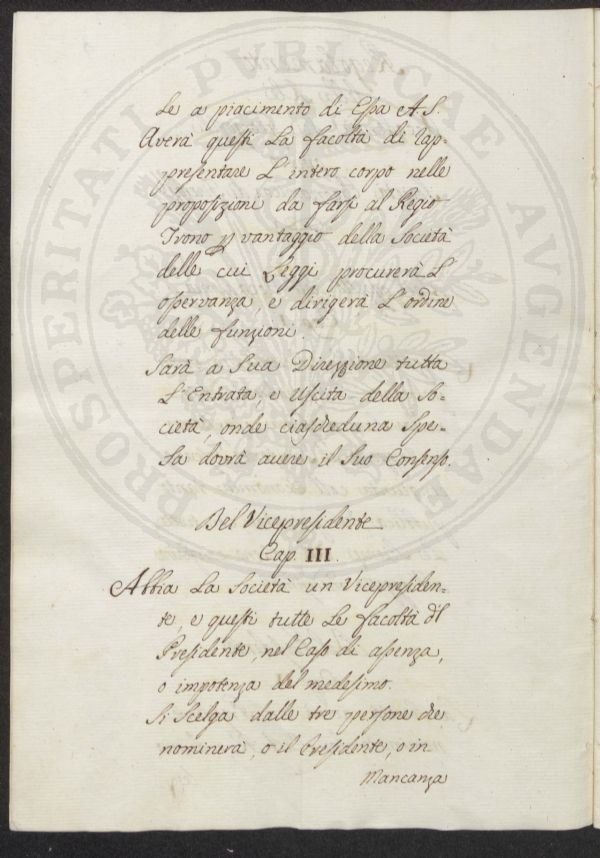 Le a piacimento di Essa A. S.
Averà questi La facoltà di rap-
presentare L'intero corpo nelle
proposizioni da farsi al Regio
Trono p vantaggio della Società
delle cui Leggi procurerà L'
osservanza, e dirigerà L'ordine
delle funzioni.
Sarà a Sua Direzzione tutta
L'Entrata, e Uscita della So-
cietà, onde ciascheduna Spe-
sa dovrà avere il Suo Consenso.
Del Vicepresidente
Cap. III.
Abbia La Società un Vicepresiden-
te, e questi tutte Le facoltà dl
Presidente, nel Caso di assenza,
o impotenza del medesimo.
Si Scelga dalle tre persone che
nominerà, o il Presidente, o in
Mancanza
PROSPERITATI PUBLICAE AUGENDAE